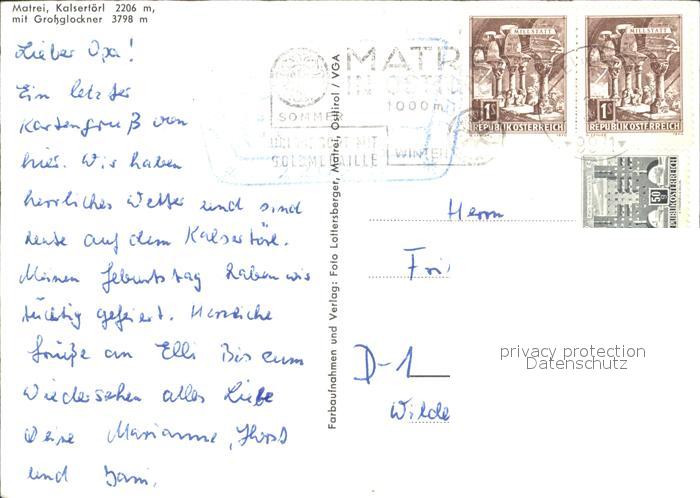 Matrei, Kalsertörl 2206 m,
mit Großglockner 3798 m
Lieber Opa!
Ein letzter
Kartengruß von
hier. Wir haben
herrliches Wetter und sind
heute auf dem Kalsertörl.
Meinen Geburtstag haben wir
tüchtig gefeiert. Herzliche
Grüße an Elli Bis zum
Wiedersehen alles Liebe
Deine Marianne, Horst
und
Farbaufnahmen und Verlag: Foto Lottersberger, Matrei, Osttirol / VGA
MATR
IN OSTTIR
1000m
SOMMER
GOLDMEDAILLE
WINTER
MILLSTATT
1S
REPUBLIK ÖSTERREICH
MILLSTATT
1S
REPUBLIK ÖSTERREICH
50
REPUBLIK ÖSTERREICH
Herrn
D-1
Wilde
privacy protection
Datenschutz